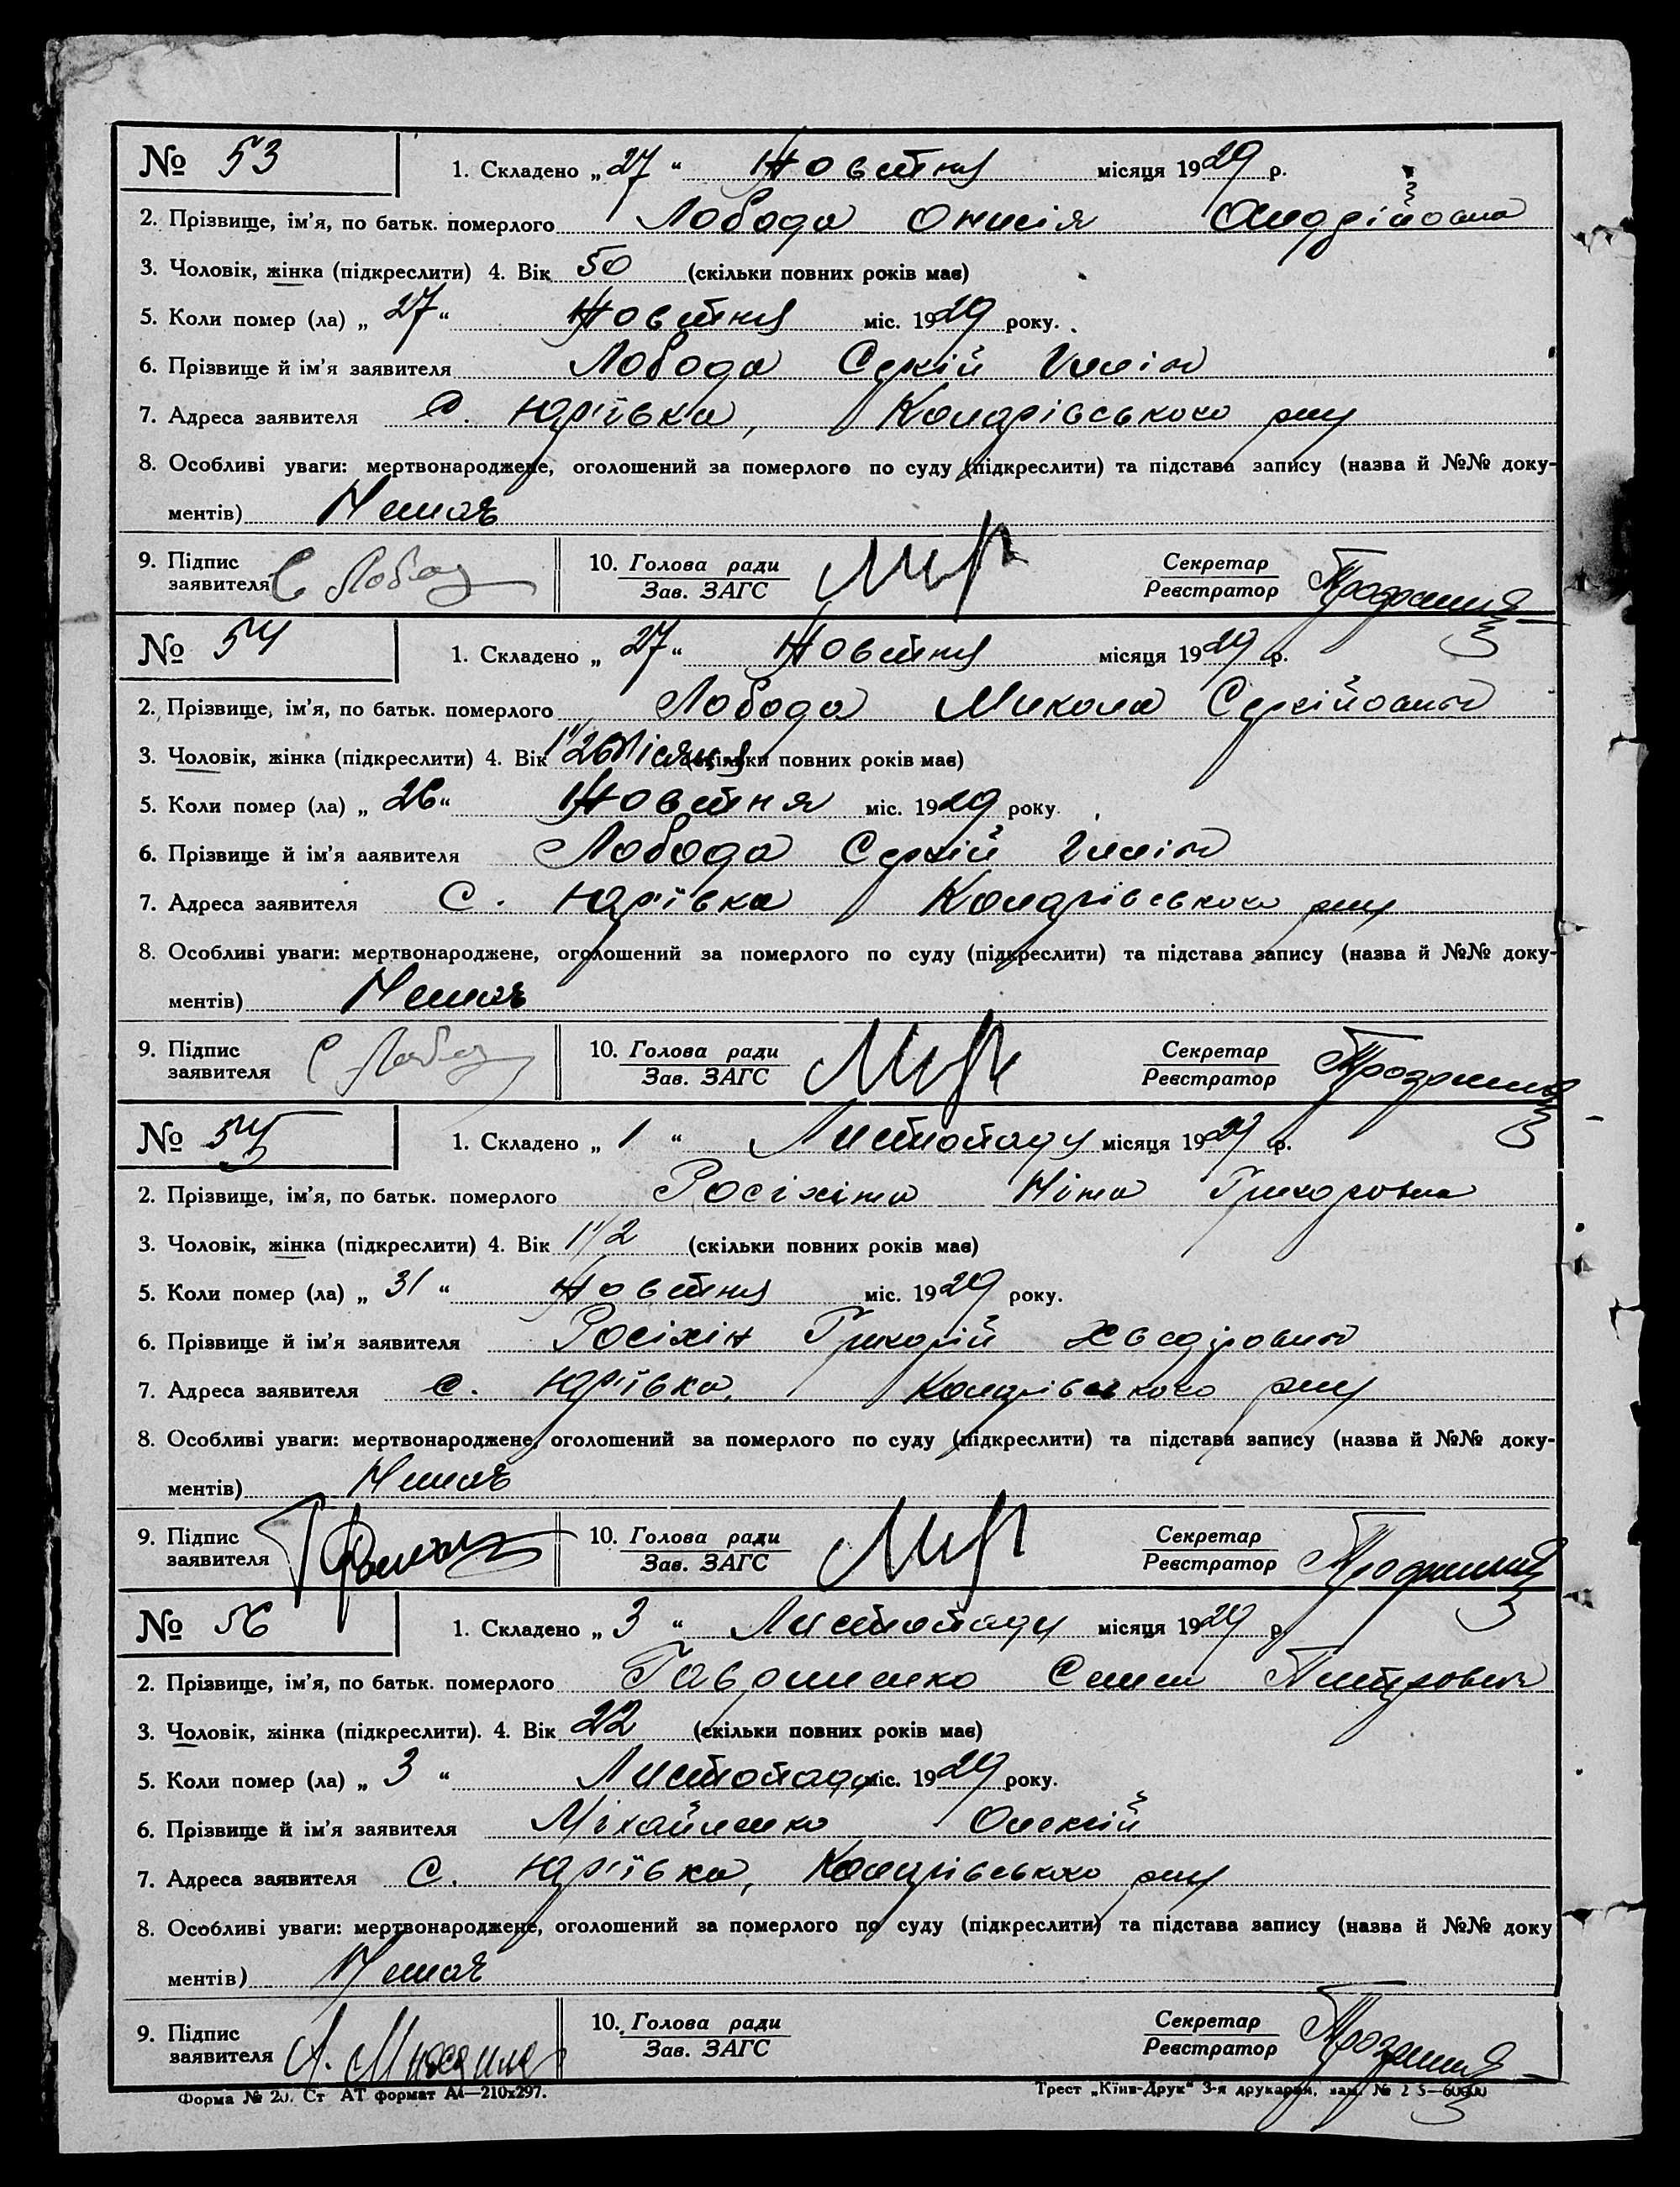 № 53 1. Складено „27“ Жовтня місяця 1929 р.
2. Прізвище, ім'я, по батьк. померлого Лобода Онисія Андріївна
3. Чоловік, жінка (підкреслити) 4. Вік 50 (скільки повних років має)
5. Коли помер (ла) „27“ Жовтня міс. 1929 року.
6. Прізвище й ім'я заявителя Лобода Сергій
7. Адреса заявителя с. Юр'ївка, рну
8. Особливі уваги: мертвонароджене, оголошений за померлого по суду (підкреслити) та підстава запису (назва й №№ доку-
ментів) Немає
9. Підпис 10. Голова ради Секретар
заявителя С Лобода Зав. ЗАГС Реєстратор
№ 54 1. Складено „27“ Жовтня місяця 1929 р.
2. Прізвище, ім'я, по батьк. померлого Лобода Микола Сергійович
3. Чоловік, жінка (підкреслити) 4. Вік 1 1/2 місяця (скільки повних років має)
5. Коли помер (ла) „26“ Жовтня міс. 1929 року.
6. Прізвище й ім'я заявителя Лобода Сергій
7. Адреса заявителя С. Юр'ївка рну
8. Особливі уваги: мертвонароджене, оголошений за померлого по суду (підкреслити) та підстава запису (назва й №№ доку-
ментів) Немає
9. Підпис 10. Голова ради Секретар
заявителя С Лобода Зав. ЗАГС Реєстратор
№ 55 1. Складено „1“ Листопаду місяця 1929 р.
2. Прізвище, ім'я, по батьк. померлого Росіхіна Ніна Григоровна
3. Чоловік, жінка (підкреслити) 4. Вік 1 1/2 (скільки повних років має)
5. Коли помер (ла) „31“ Жовтня міс. 1929 року.
6. Прізвище й ім'я заявителя Росіхін Григорій Хведірович
7. Адреса заявителя с. Юр'ївка, рну
8. Особливі уваги: мертвонароджене, оголошений за померлого по суду (підкреслити) та підстава запису (назва й №№ доку-
ментів) Немає
9. Підпис 10. Голова ради Секретар
заявителя Зав. ЗАГС Реєстратор
№ 56 1. Складено „3“ Листопаду місяця 1929 р.
2. Прізвище, ім'я, по батьк. померлого Семен Петрович
3. Чоловік, жінка (підкреслити). 4. Вік 22 (скільки повних років має)
5. Коли помер (ла) „3“ Листопаду міс. 1929 року.
6. Прізвище й ім'я заявителя Міхайленко Олексій
7. Адреса заявителя С. Юр'ївка, рну
8. Особливі уваги: мертвонароджене, оголошений за померлого по суду (підкреслити) та підстава запису (назва й №№ доку
ментів) Немає
9. Підпис 10. Голова ради Секретар
заявителя Зав. ЗАГС Реєстратор
Форма № 20. Ст АТ формат А4—210х297. Трест „Київ-Друк“ 3-я друкарня, зам. №